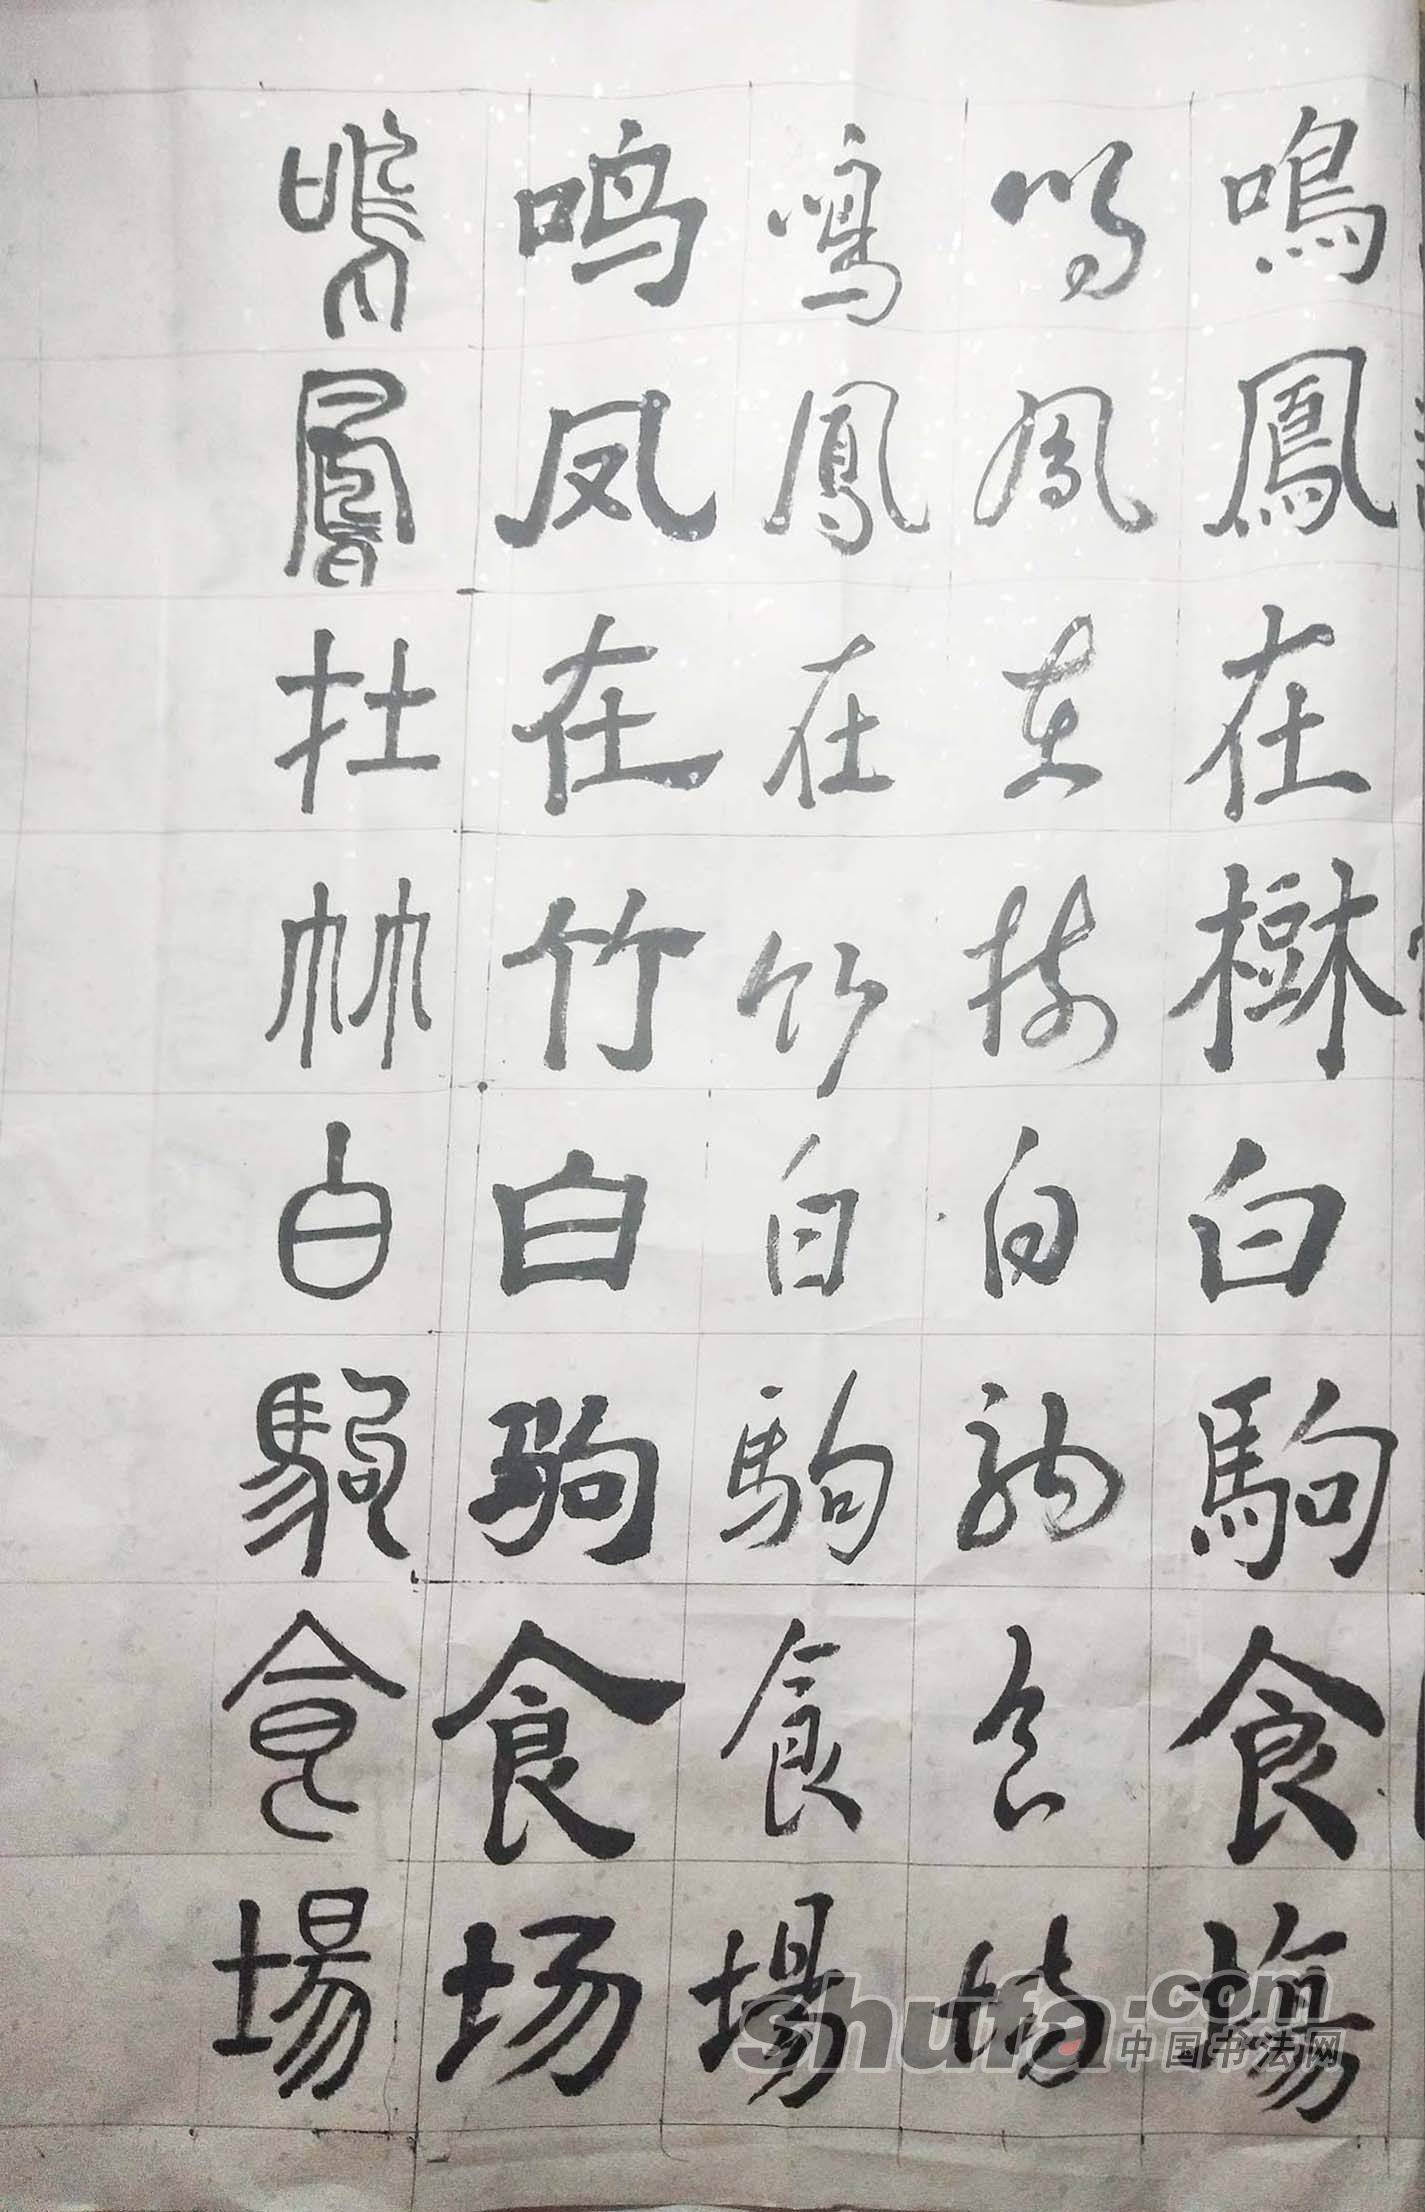 鳴鳳在樹白駒食塲
鳴鳳在樹白駒食場
鳴鳳在竹白駒食場
鸣凤在竹白驹食场
鳴鳳在竹白駒食場
shufa.com
中国书法网